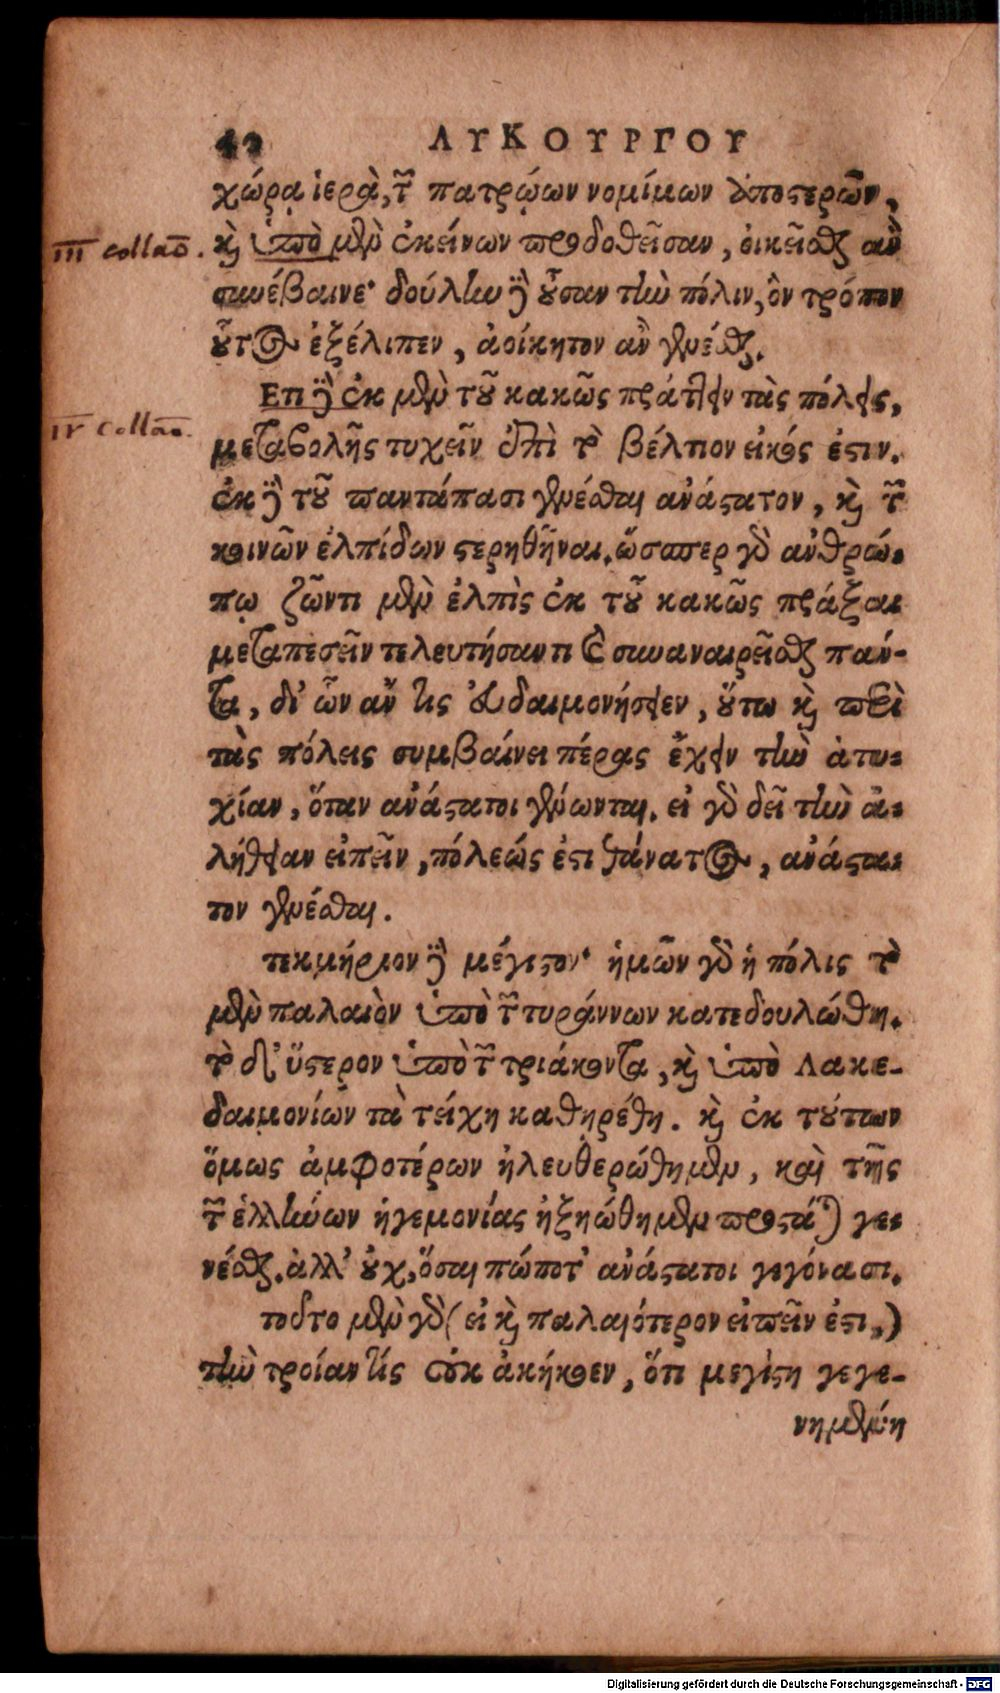 42 ΛΥΚΟΥΡΓΟΥ
χώρα ἱερὰ, τῶν πατρῴων νομίμων ἀποστερῶν,
III collaõ. καὶ ὑπὸ μὲν ἐκείνων προδοθεῖσαν, οἰκεῖσθαι ἂν
συνέβαινε· δούλην δὲ οὖσαν τὴν πόλιν, ὃν τρόπον
οὗτος ἐξέλιπεν, ἀοίκητον ἂν γενέσθαι.
Επι δὲ ἐκ μὲν τοῦ κακῶς πράττειν τὰς πόλεις,
IV collaõ. μεταβολῆς τυχεῖν ἐπὶ τὸ βέλτιον εἰκός ἐστιν.
ἐκ δὲ τοῦ παντάπασι γενέσθαι ἀνάστατον, καὶ τῶν
κοινῶν ἐλπίδων στερηθῆναι. ὥσπερ γὰρ ἀνθρώ-
πῳ ζῶντι μὲν ἐλπὶς ἐκ τοῦ κακῶς πράξαι
μεταπεσεῖν τελευτήσαντι δὲ συναναιρεῖσθαι πάν-
τα, δι' ὧν ἄν τις εὐδαιμονήσειεν, οὕτω καὶ περὶ
τὰς πόλεις συμβαίνει πέρας ἔχειν τὴν ἀτυ-
χίαν, ὅταν ἀνάστατοι γένωνται. εἰ γὰρ δεῖ τὴν ἀ-
λήθειαν εἰπεῖν, πόλεώς ἐστι θάνατος, ἀνάστα-
τον γενέσθαι.
τεκμήριον δὲ μέγιστον· ἡμῶν γὰρ ἡ πόλις τὸ
μὲν παλαιὸν ὑπὸ τῶν τυράννων κατεδουλώθη.
τὸ δ' ὕστερον ὑπὸ τῶν τριάκοντα, καὶ ὑπὸ Λακε-
δαιμονίων τὰ τείχη καθηρέθη. καὶ ἐκ τούτων
ὅμως ἀμφοτέρων ἠλευθερώθημεν, καὶ τῆς
τῶν ἑλλήνων ἡγεμονίας ἠξιώθημεν προστάται γε-
νέσθαι. ἀλλ' οὐχ, ὅσαι πώποτ' ἀνάστατοι γεγόνασι.
τοῦτο μὲν γὰρ (εἰ καὶ παλαιότερον εἰπεῖν ἐστι,)
τὴν τροίαν τίς οὐκ ἀκήκοεν, ὅτι μεγίστη γεγε-
νημένη
Digitalisierung gefördert durch die Deutsche Forschungsgemeinschaft - DFG